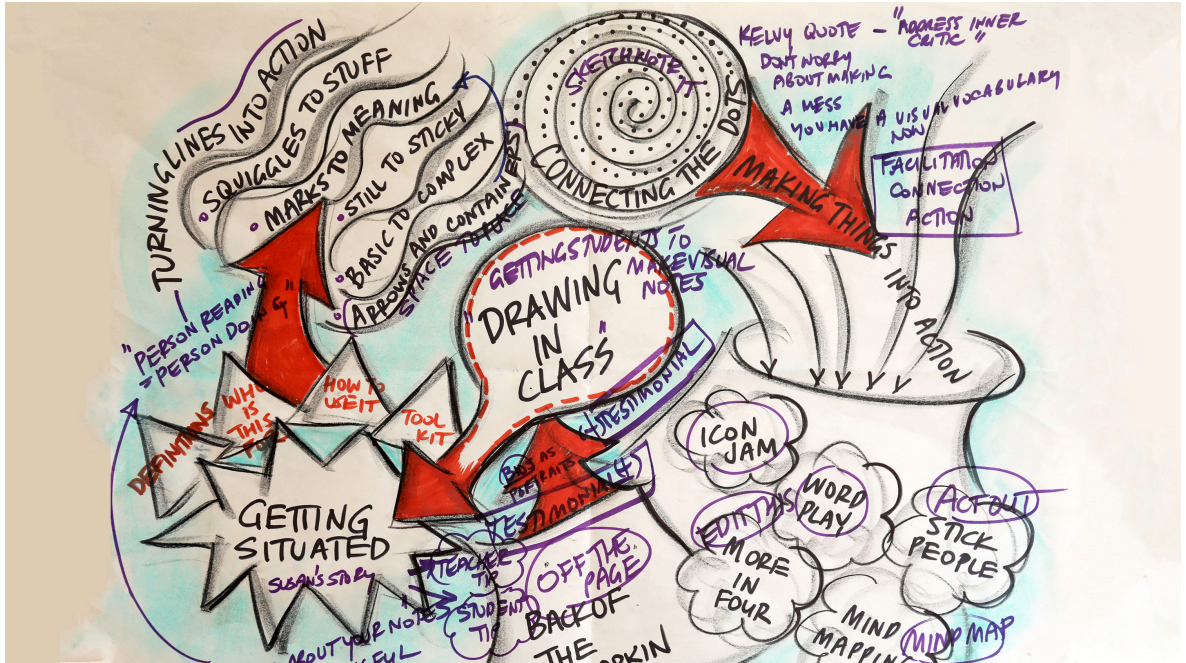 TURNING LINES INTO ACTION
• SQUIGGLES TO STUFF
• MARKS TO MEANING
• STILL TO STICKY
• BASIC TO COMPLEX
• ARROWS AND CONTAINERS
SPACE TO PLACE
"PERSON READING
= PERSON DOING"
SKETCHNOTE IT
CONNECTING THE DOTS
KELVY QUOTE - "ADDRESS INNER
CRITIC"
DONT WORRY
ABOUT MAKING
A MESS
YOU HAVE A VISUAL VOCABULARY
NOW
FACILITATION
CONNECTION
ACTION
MAKING THINGS
INTO ACTION
GETTING STUDENTS TO
MAKE VISUAL
NOTES
"DRAWING
IN
CLASS"
(+) TESTIMONIAL
BIOS AS
PORTRAITS
TESTIMONIAL (+)
DEFINITIONS
WHO
IS
THIS
HOW TO
USE IT
TOOL
KIT
GETTING
SITUATED
SUSAN'S STORY
TEACHER
TIP
STUDENT
TIP
ABOUT YOUR NOTES
"OFF THE
PAGE"
BACK OF
THE
ICON
JAM
WORD
PLAY
EDIT THIS
MORE
IN
FOUR
ACT OUT
STICK
PEOPLE
MIND
MAPPING
MIND MAP